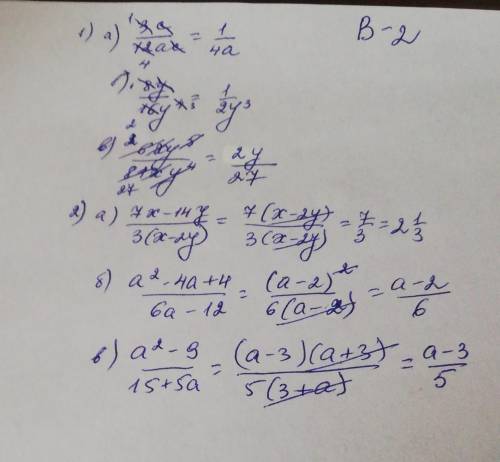 В-2
1) а) 3a/12aa = 1/4a
б) 8y/16y⁴ = 1/2y³
в) = 2y/27
2) а) 7x-14y/3(x-2y) = 7(x-2y)/3(x-2y) = 7/3 = 2 1/3
б) a²-4a+4/6a-12 = (a-2)²/6(a-2) = a-2/6
в) a²-9/15+5a = (a-3)(a+3)/5(3+a) = a-3/5